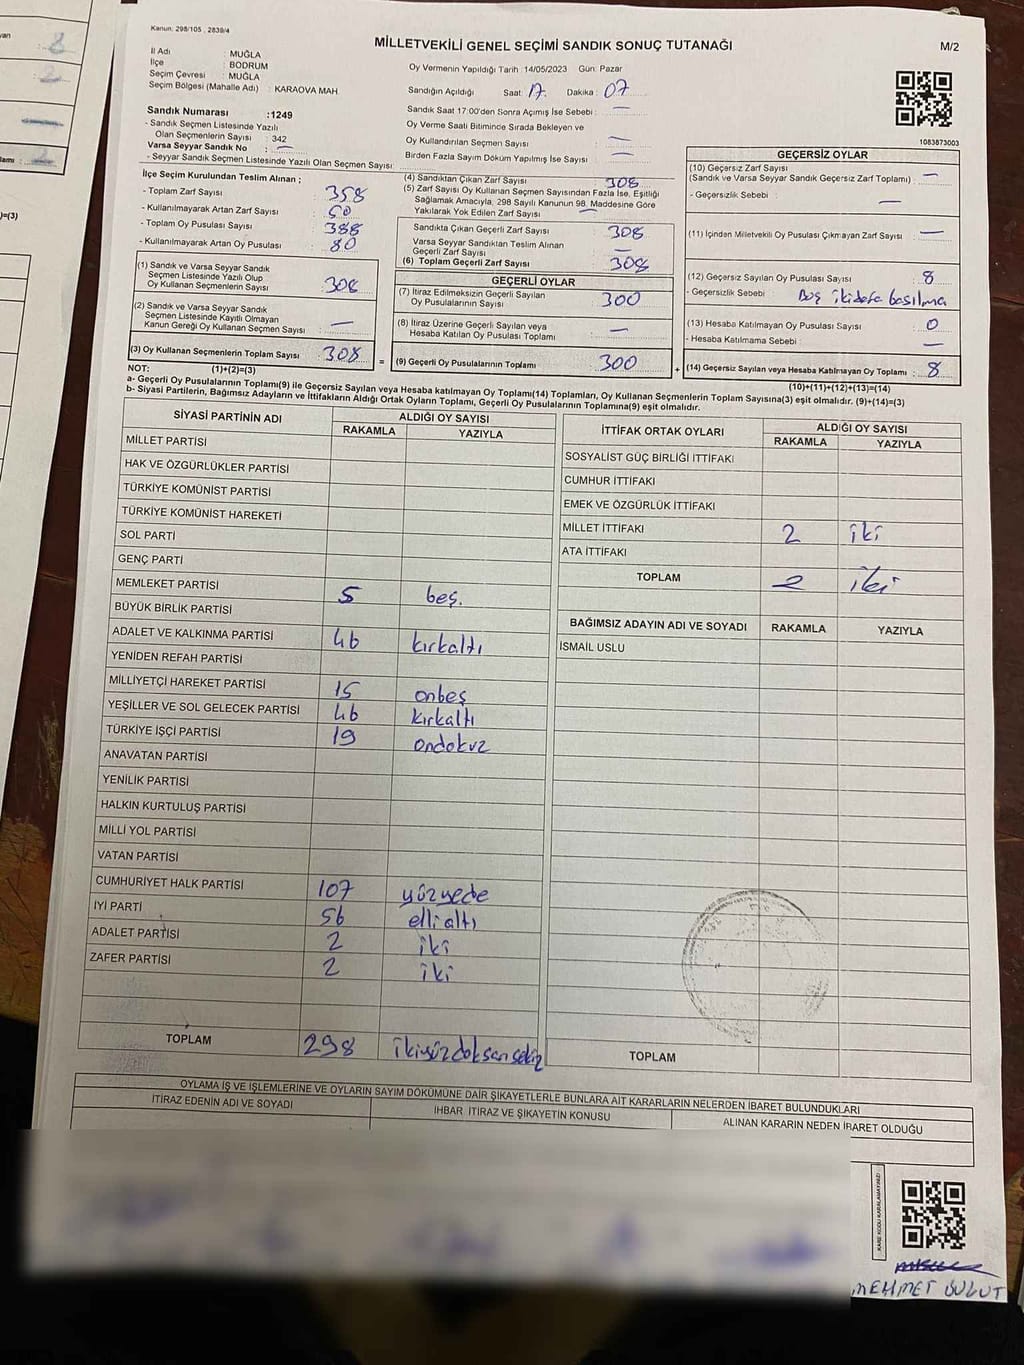 Kanun: 298/105 , 2839/4
MİLLETVEKİLİ GENEL SEÇİMİ SANDIK SONUÇ TUTANAĞI
M/2
İl Adı : MUĞLA
İlçe : BODRUM
Seçim Çevresi : MUĞLA
Seçim Bölgesi (Mahalle Adı) : KARAOVA MAH
Sandık Numarası :1249
- Sandık Seçmen Listesinde Yazılı
Olan Seçmenlerin Sayısı : 342
Varsa Seyyar Sandık No : —
- Seyyar Sandık Seçmen Listesinde Yazılı Olan Seçmen Sayısı:
Oy Vermenin Yapıldığı Tarih :14/05/2023 Gün: Pazar
Sandığın Açıldığı Saat: 17 Dakika : 07
Sandık Saat 17:00'den Sonra Açımış İse Sebebi : —
Oy Verme Saati Bitiminde Sırada Bekleyen ve
Oy Kullandırılan Seçmen Sayısı : —
Birden Fazla Sayım Döküm Yapılmış İse Sayısı : —
1083873003
İlçe Seçim Kurulundan Teslim Alınan ;
- Toplam Zarf Sayısı : 358
- Kullanılmayarak Artan Zarf Sayısı : 50
- Toplam Oy Pusulası Sayısı : 388
- Kullanılmayarak Artan Oy Pusulası : 80
(1) Sandık ve Varsa Seyyar Sandık
Seçmen Listesinde Yazılı Olup
Oy Kullanan Seçmenlerin Sayısı : 308
(2) Sandık ve Varsa Seyyar Sandık
Seçmen Listesinde Kayıtlı Olmayan
Kanun Gereği Oy Kullanan Seçmen Sayısı : —
(3) Oy Kullanan Seçmenlerin Toplam Sayısı : 308
(4) Sandıktan Çıkan Zarf Sayısı : 308
(5) Zarf Sayısı Oy Kullanan Seçmen Sayısından Fazla İse, Eşitliği
Sağlamak Amacıyla, 298 Sayılı Kanunun 98. Maddesine Göre
Yakılarak Yok Edilen Zarf Sayısı : —
Sandıkta Çıkan Geçerli Zarf Sayısı : 308
Varsa Seyyar Sandıktan Teslim Alınan
Geçerli Zarf Sayısı : —
(6) Toplam Geçerli Zarf Sayısı : 308
GEÇERLİ OYLAR
(7) İtiraz Edilmeksizin Geçerli Sayılan
Oy Pusulalarının Sayısı : 300
(8) İtiraz Üzerine Geçerli Sayılan veya
Hesaba Katılan Oy Pusulası Toplamı : —
= (9) Geçerli Oy Pusulalarının Toplamı : 300
GEÇERSİZ OYLAR
(10) Geçersiz Zarf Sayısı
(Sandık ve Varsa Seyyar Sandık Geçersiz Zarf Toplamı) : —
- Geçersizlik Sebebi : —
(11) İçinden Milletvekili Oy Pusulası Çıkmayan Zarf Sayısı : —
(12) Geçersiz Sayılan Oy Pusulası Sayısı : 8
- Geçersizlik Sebebi : Boş ikidefa basılma
(13) Hesaba Katılmayan Oy Pusulası Sayısı : 0
- Hesaba Katılmama Sebebi : —
+ (14) Geçersiz Sayılan veya Hesaba Katılmayan Oy Toplamı : 8
NOT: (1)+(2)=(3)
(10)+(11)+(12)+(13)=(14)
a- Geçerli Oy Pusulalarının Toplamı(9) ile Geçersiz Sayılan veya Hesaba katılmayan Oy Toplamı(14) Toplamları, Oy Kullanan Seçmenlerin Toplam Sayısına(3) eşit olmalıdır. (9)+(14)=(3)
b- Siyasi Partilerin, Bağımsız Adayların ve İttifakların Aldığı Ortak Oyların Toplamı, Geçerli Oy Pusulalarının Toplamına(9) eşit olmalıdır.
SİYASİ PARTİNİN ADI ALDIĞI OY SAYISI
RAKAMLA YAZIYLA
MİLLET PARTİSİ
HAK VE ÖZGÜRLÜKLER PARTİSİ
TÜRKİYE KOMÜNİST PARTİSİ
TÜRKİYE KOMÜNİST HAREKETİ
SOL PARTİ
GENÇ PARTİ
MEMLEKET PARTİSİ 5 beş.
BÜYÜK BİRLİK PARTİSİ
ADALET VE KALKINMA PARTİSİ 46 kırkaltı
YENİDEN REFAH PARTİSİ
MİLLİYETÇİ HAREKET PARTİSİ 15 onbeş
YEŞİLLER VE SOL GELECEK PARTİSİ 46 kırkaltı
TÜRKİYE İŞÇİ PARTİSİ 19 ondokuz
ANAVATAN PARTİSİ
YENİLİK PARTİSİ
HALKIN KURTULUŞ PARTİSİ
MİLLİ YOL PARTİSİ
VATAN PARTİSİ
CUMHURİYET HALK PARTİSİ 107 yüzyede
İYİ PARTİ 56 elli altı
ADALET PARTİSİ 2 iki
ZAFER PARTİSİ 2 iki
TOPLAM 298 ikiyüzdoksansekiz
İTTİFAK ORTAK OYLARI ALDIĞI OY SAYISI
RAKAMLA YAZIYLA
SOSYALİST GÜÇ BİRLİĞİ İTTİFAKI
CUMHUR İTTİFAKI
EMEK VE ÖZGÜRLÜK İTTİFAKI
MİLLET İTTİFAKI 2 iki
ATA İTTİFAKI
TOPLAM 2 iki
BAĞIMSIZ ADAYIN ADI VE SOYADI RAKAMLA YAZIYLA
İSMAİL USLU
TOPLAM
OYLAMA İŞ VE İŞLEMLERİNE VE OYLARIN SAYIM DÖKÜMÜNE DAİR ŞİKAYETLERLE BUNLARA AİT KARARLARIN NELERDEN İBARET BULUNDUKLARI
İTİRAZ EDENİN ADI VE SOYADI İHBAR İTİRAZ VE ŞİKAYETİN KONUSU ALINAN KARARIN NEDEN İBARET OLDUĞU
KARE KODU KARALAMAYINIZ!
MEHMET BULUT